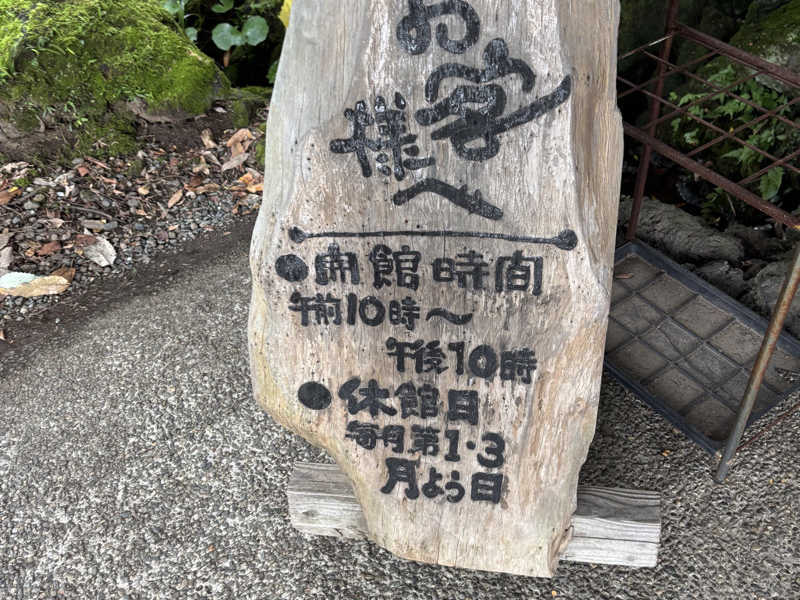 お客
様へ
●開館時間
午前10時〜
午後10時
●休館日
毎月第1・3
月よう日